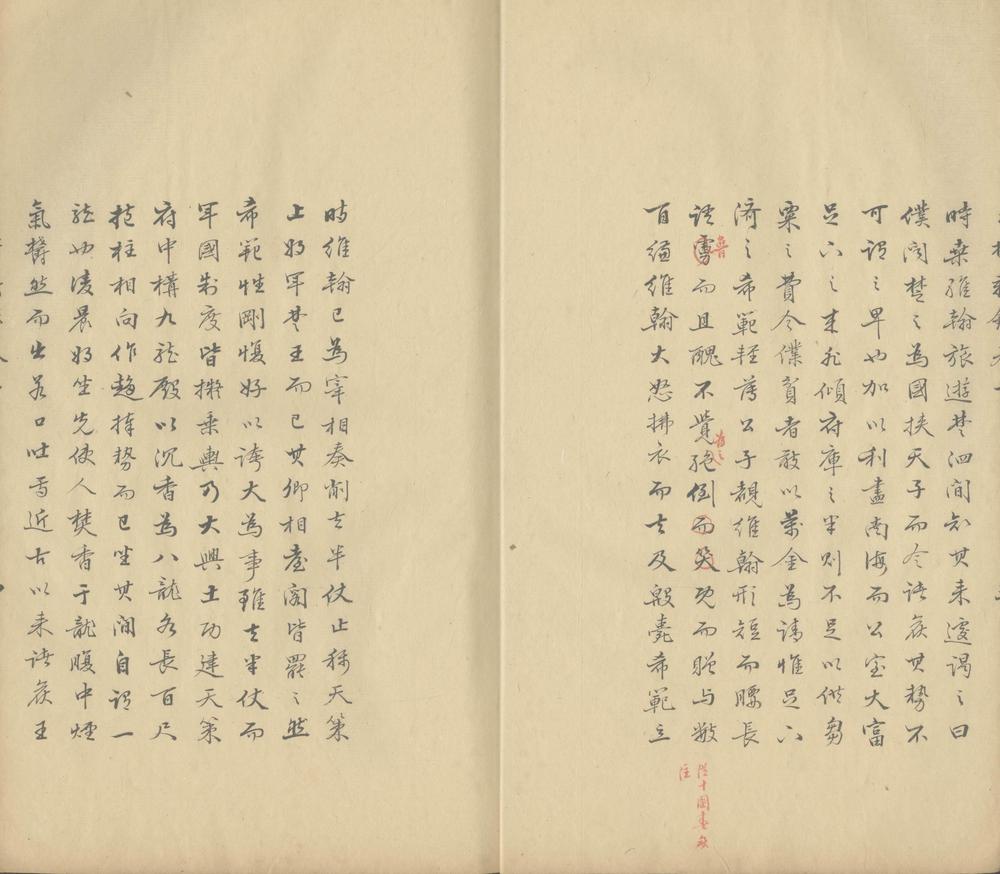 時桒維翰旅遊楚泗間知其来遽謁之曰
僕闻楚之為國挟天子而令诸矦其勢不
可謂之卑也加以利盡南海而公室大富
足下之来非傾府庫之半則不足以供芻
粟之費今僕貧者敢以萬金為請惟足下
済之希範輕薄公子覩維翰形短而腰長
语魯而且醜不覺絶倒而笑既而贈与數
百缣維翰大怒拂衣而去及殷薨希範立
從十國春秋
注
時維翰已為宰相奏削去半仗止稱天策
上將军楚王而已其卿相臺閣皆罷之然
希範性剛愎好以誇大為事雖去半仗而
军國制度皆擬乗輿乃大興土功建天策
府中構九龙殿以沉香為八龍各長百尺
抱柱相向作趨捧勢而已坐其间自謂一
龙也凌晨將坐先使人焚香于龍腹中煙
氣欝然而出若口吐焉近古以来诸矦王